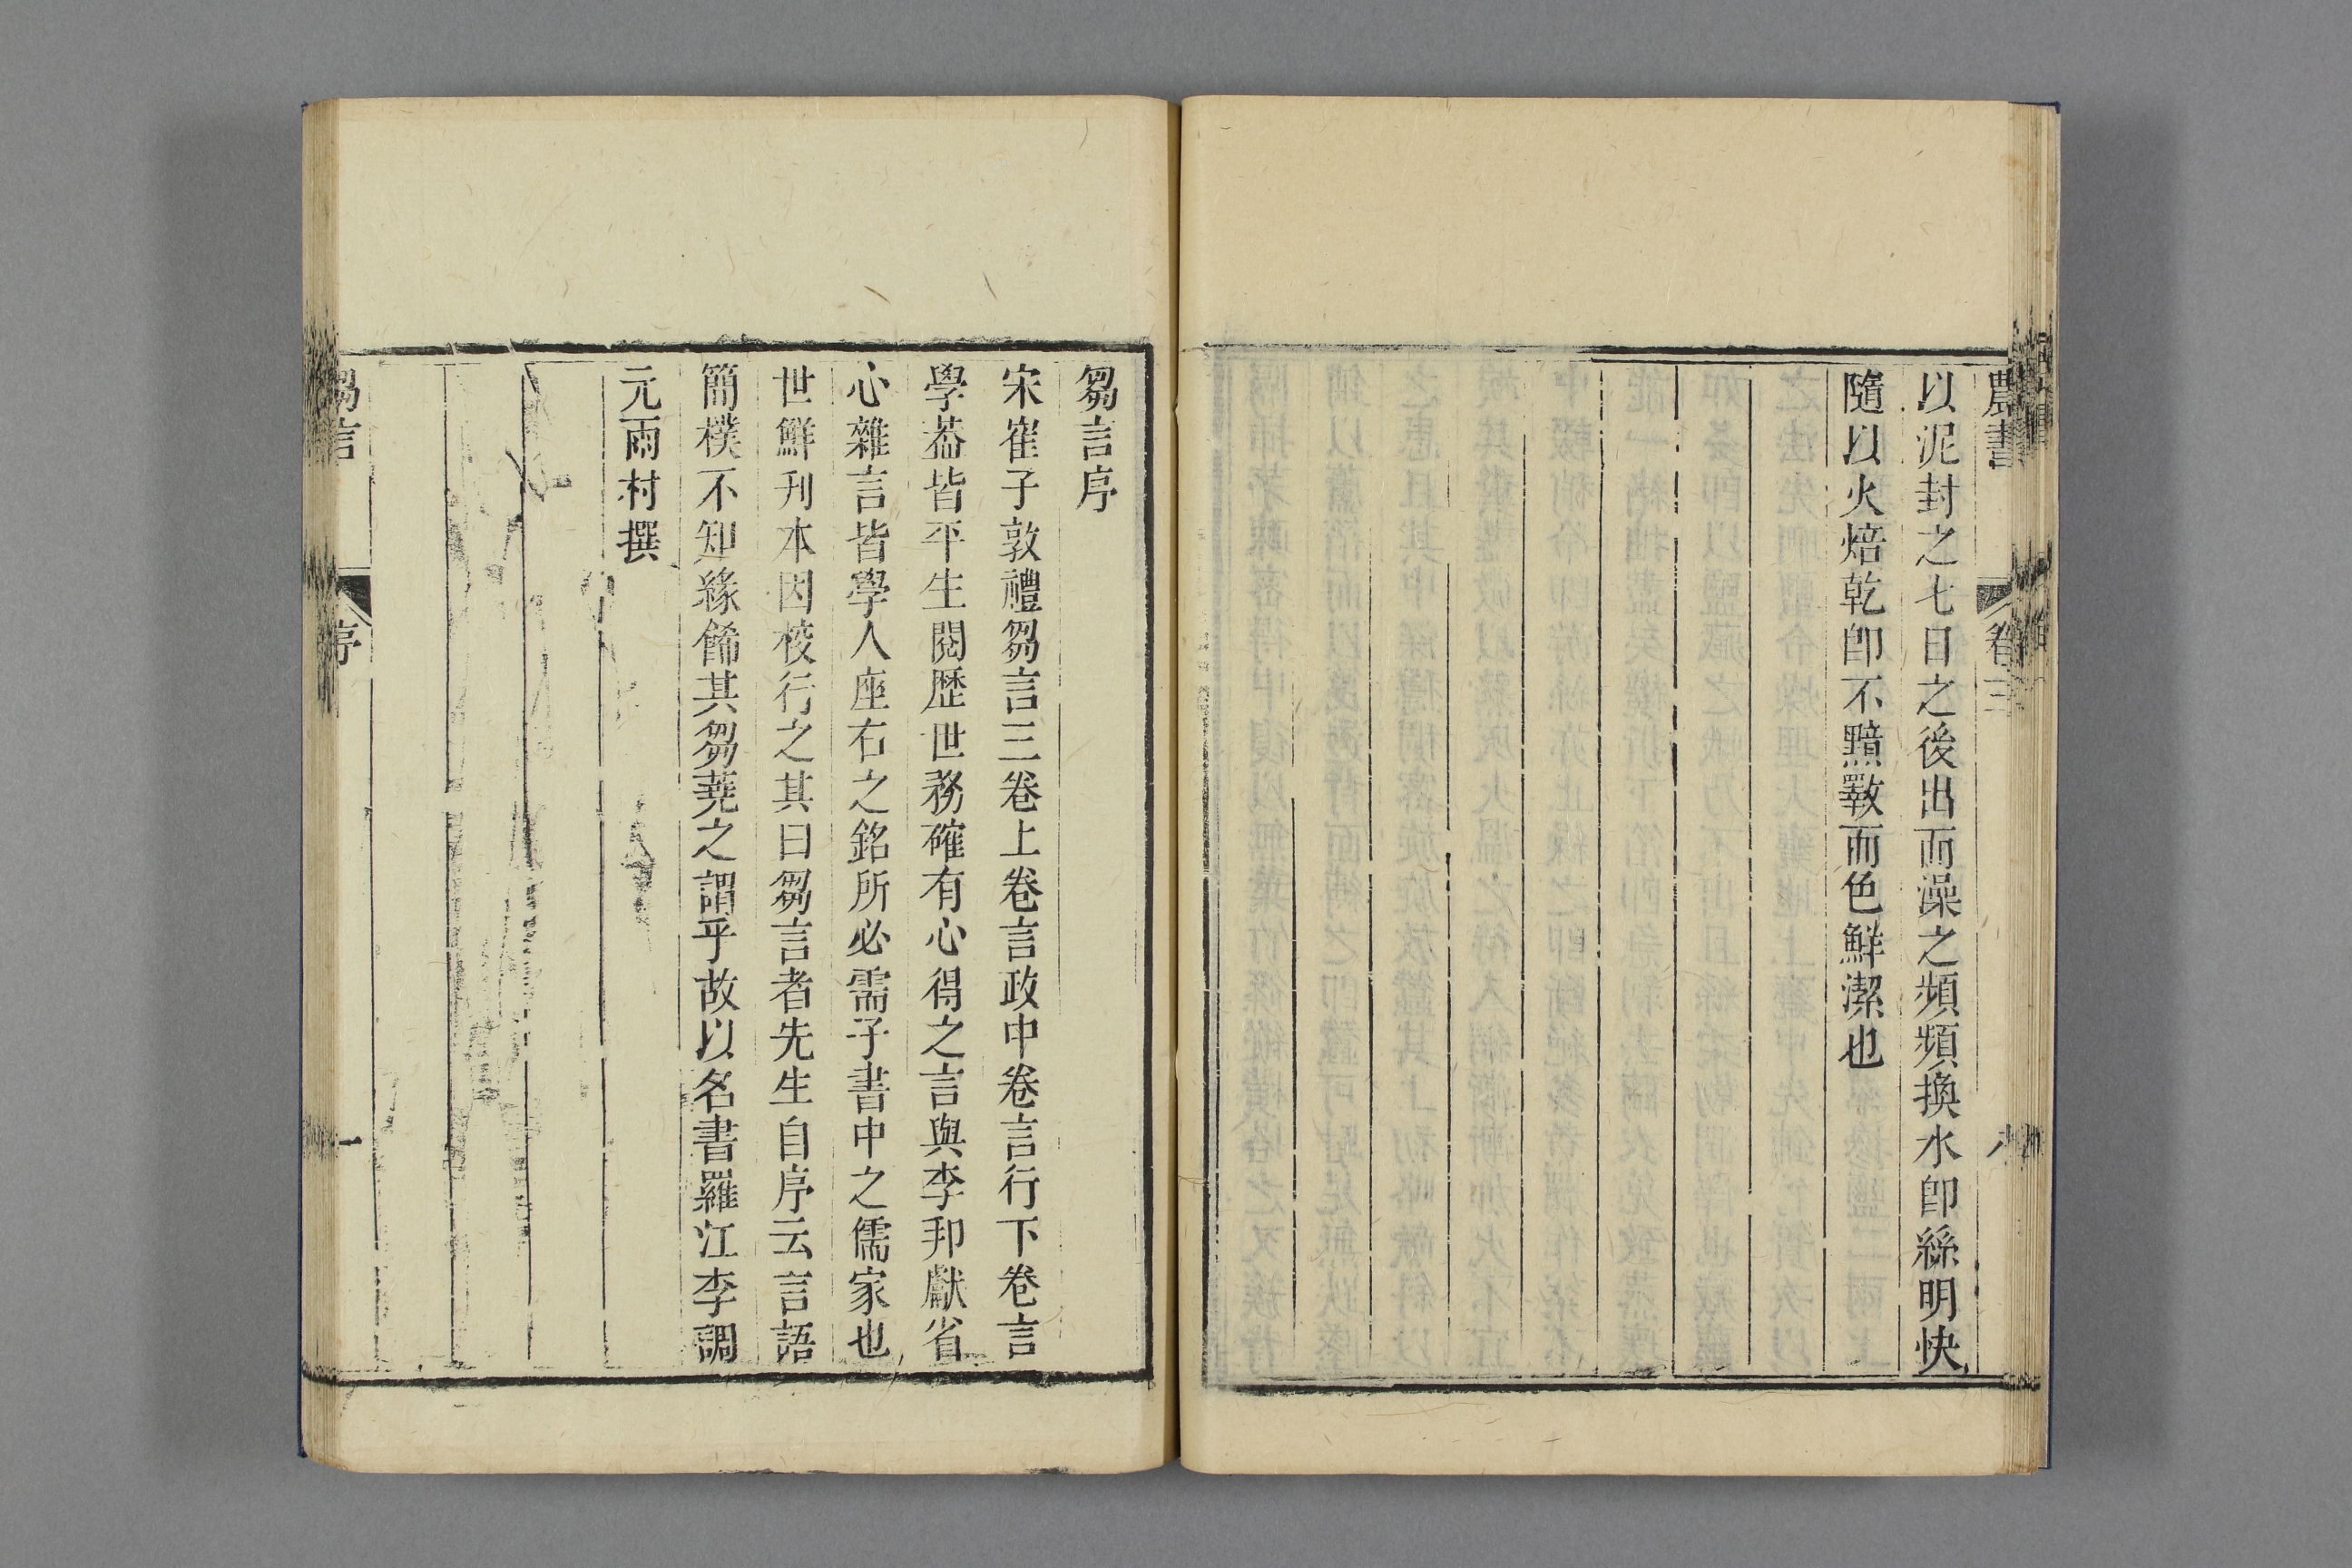 農書 卷三
以泥封之七日之後出而澡之頻頻換水卽絲明快
隨以火焙乾卽不黯斁而色鮮潔也
芻言序
宋崔子敦禮芻言三卷上卷言政中卷言行下卷言
學葢皆平生閱歷世務確有心得之言與李邦獻省
心雜言皆學人座右之銘所必需子書中之儒家也
世鮮刋本因校行之其曰芻言者先生自序云言語
簡樸不知緣餙其芻蕘之謂乎故以名書羅江李調
元雨村撰
芻言 序 一